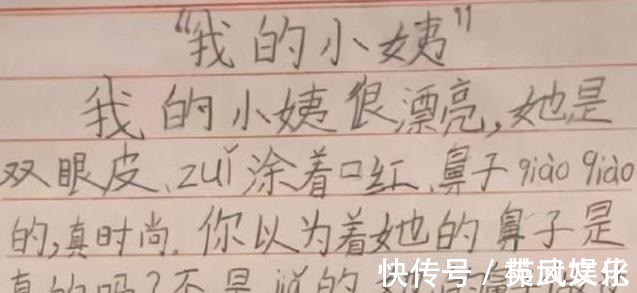 “我的小姨”
我的小姨很漂亮,她是
双眼皮、zuǐ涂着口红、鼻子qiào qiào
的,真时尚.你以为着她的鼻子是
真的吗?不是
的
快传号